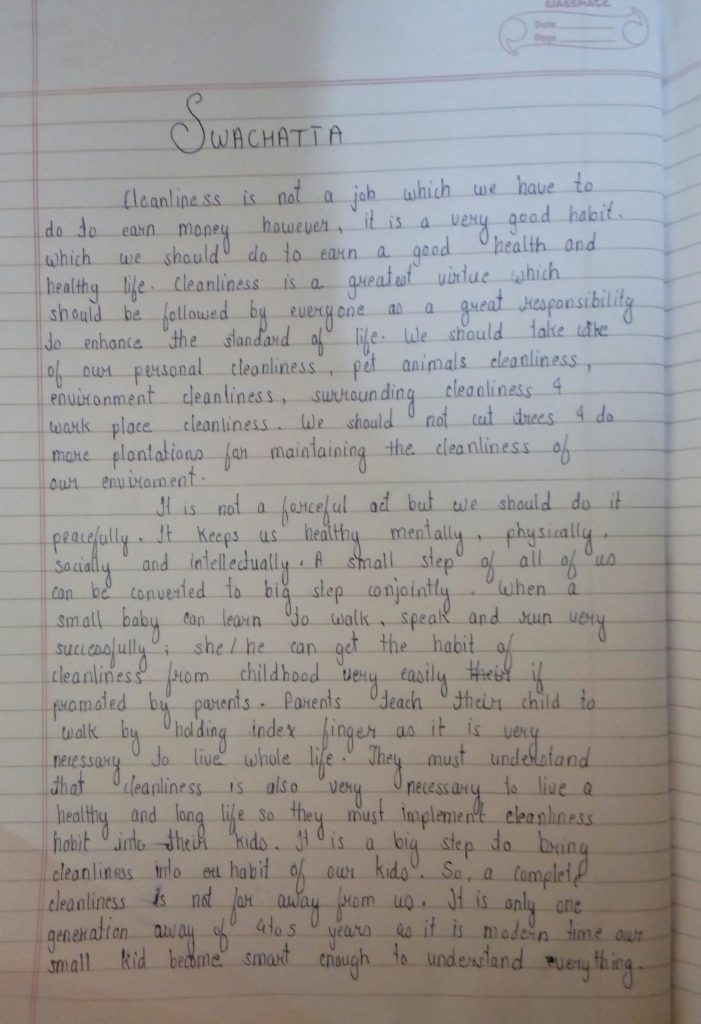 CLASSMATE
Date
Page
SWACHATTA
Cleanliness is not a job which we have to
do to earn money however, it is a very good habit.
which we should do to earn a good health and
healthy life. Cleanliness is a greatest virtue which
should be followed by everyone as a great responsibility
to enhance the standard of life. We should take care
of our personal cleanliness, pet animals cleanliness,
environment cleanliness, surrounding cleanliness &
work place cleanliness. We should not cut trees & do
more plantations for maintaining the cleanliness of
our enviroment.
It is not a forceful act but we should do it
peacefully. It keeps us healthy mentally, physically,
socially and intellectually. A small step of all of us
can be converted to big step conjointly. When a
small baby can learn to walk, speak and run very
successfully; she/he can get the habit of
cleanliness from childhood very easily their if
promoted by parents. Parents teach their child to
walk by holding index finger as it is very
necessary to live whole life. They must understand
that cleanliness is also very necessary to live a
healthy and long life so they must implement cleanliness
habit into their kids. It is a big step to bring
cleanliness into ou habit of our kids. So, a complete
cleanliness is not far away from us. It is only one
generation away of 4 to 5 years as it is modern time our
small kid become smart enough to understand everything.